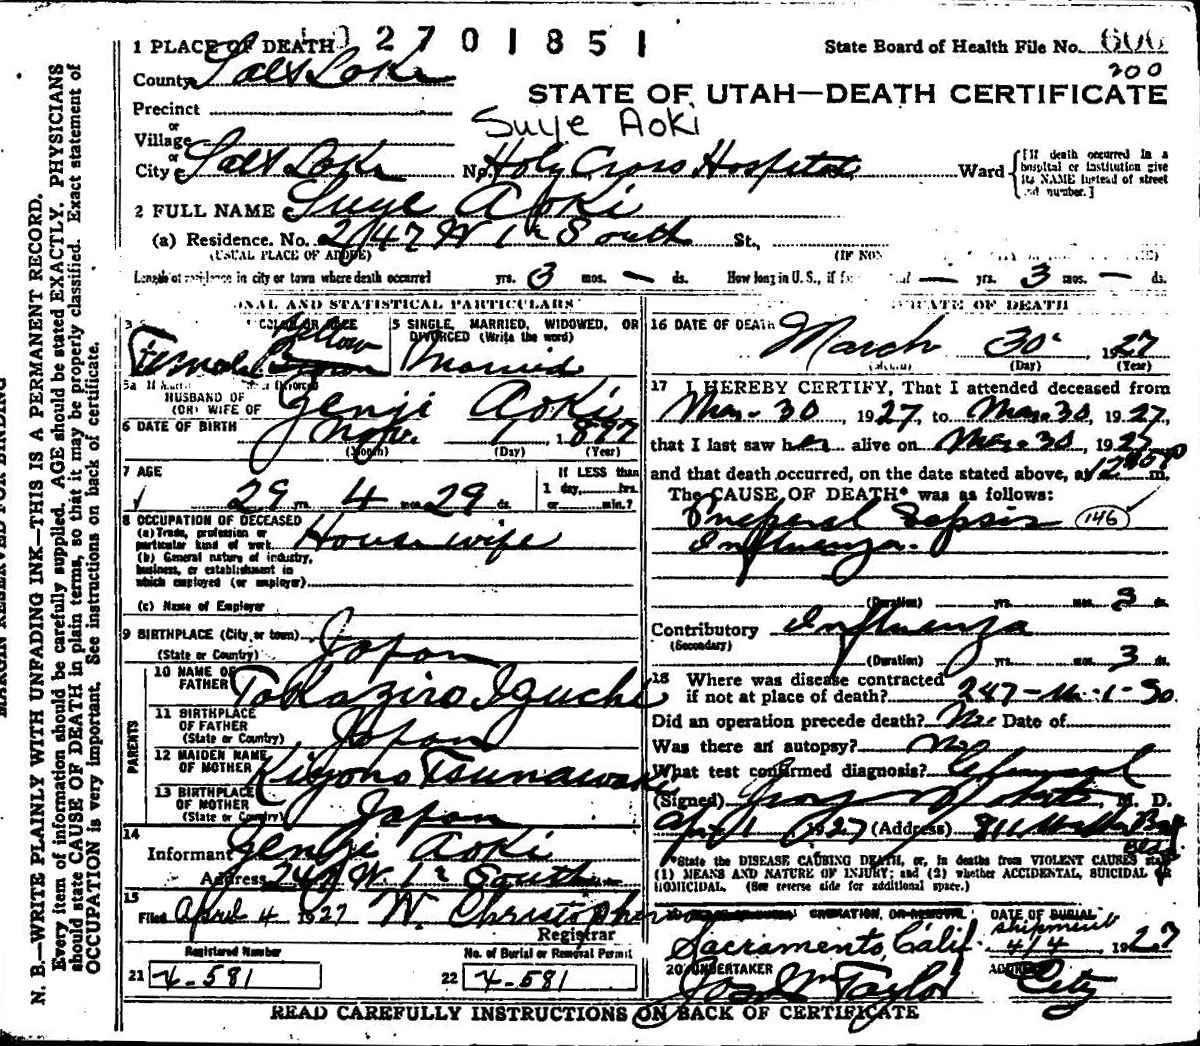 1 PLACE OF DEATH 2701851
State Board of Health File No. 606
200
County Salt Lake
STATE OF UTAH—DEATH CERTIFICATE
Precinct
or
Suye Aoki
Village
or
City Salt Lake No. Holy Cross Hospital Ward [If death occurred in a hospital or institution give its NAME instead of street and number.]
2 FULL NAME Suye Aoki
(a) Residence. No. 247 W 1st South St.,
(USUAL PLACE OF ABODE) (IF NON
Length of residence in city or town where death occurred yrs. 3 mos. — ds. How long in U. S., if — yrs. 3 mos. — ds.
PERSONAL AND STATISTICAL PARTICULARS
COLOR OR RACE
Female Yellow Brown
5 SINGLE, MARRIED, WIDOWED, OR DIVORCED (Write the word)
Married
5a If Married Divorced
HUSBAND OF
(OR) WIFE OF Genji Aoki
6 DATE OF BIRTH Nov. 1 1897
(Month) (Day) (Year)
7 AGE 29 yrs. 4 mos. 29 ds.
If LESS than
1 day, hrs.
or min.?
8 OCCUPATION OF DECEASED
(a) Trade, profession or
particular kind of work Housewife
(b) General nature of industry,
business, or establishment in
which employed (or employer)
(c) Name of Employer
9 BIRTHPLACE (City or town)
(State or Country) Japan
PARENTS
10 NAME OF
FATHER Takaziro Iguchi
11 BIRTHPLACE
OF FATHER
(State or Country) Japan
12 MAIDEN NAME
OF MOTHER Kiyono Tsunawaki
13 BIRTHPLACE
OF MOTHER
(State or Country) Japan
14
Informant Genji Aoki
Address 247 W. 1st South
15
Filed April 4 1927 W. Christopherson
Registrar
Registered Number No. of Burial or Removal Permit
21 4-581 22 4-581
CERTIFICATE OF DEATH
16 DATE OF DEATH March 30 1927
(Month) (Day) (Year)
17 I HEREBY CERTIFY, That I attended deceased from
Mar-30, 1927, to Mar 30, 1927,
that I last saw her alive on Mar 30, 1927
and that death occurred, on the date stated above, at m.
The CAUSE OF DEATH* was as follows:
Puerperal Sepsis 146
Influenza.
(Duration) yrs. mos. 3 ds.
Contributory Influenza
(Secondary)
(Duration) yrs. mos. 3 ds.
18 Where was disease contracted
if not at place of death? 247-W-1-So.
Did an operation precede death? No Date of
Was there an autopsy? No
What test confirmed diagnosis?
(Signed) Roberts, M. D.
April 1 1927 (Address) 811 Bldg
*State the DISEASE CAUSING DEATH, or, in deaths from VIOLENT CAUSES state
(1) MEANS AND NATURE OF INJURY; and (2) whether ACCIDENTAL, SUICIDAL OR
HOMICIDAL. (See reverse side for additional space.)
CREMATION, OR REMOVAL DATE OF BURIAL
Sacramento, Calif. shipment 4/4 1927
20 UNDERTAKER ADDRESS
Jos Wm Taylor City
READ CAREFULLY INSTRUCTIONS ON BACK OF CERTIFICATE
MARGIN RESERVED FOR BINDING
N. B.—WRITE PLAINLY WITH UNFADING INK—THIS IS A PERMANENT RECORD.
Every item of information should be carefully supplied. AGE should be stated EXACTLY. PHYSICIANS
should state CAUSE OF DEATH in plain terms, so that it may be properly classified. Exact statement of
OCCUPATION is very important. See instructions on back of certificate.